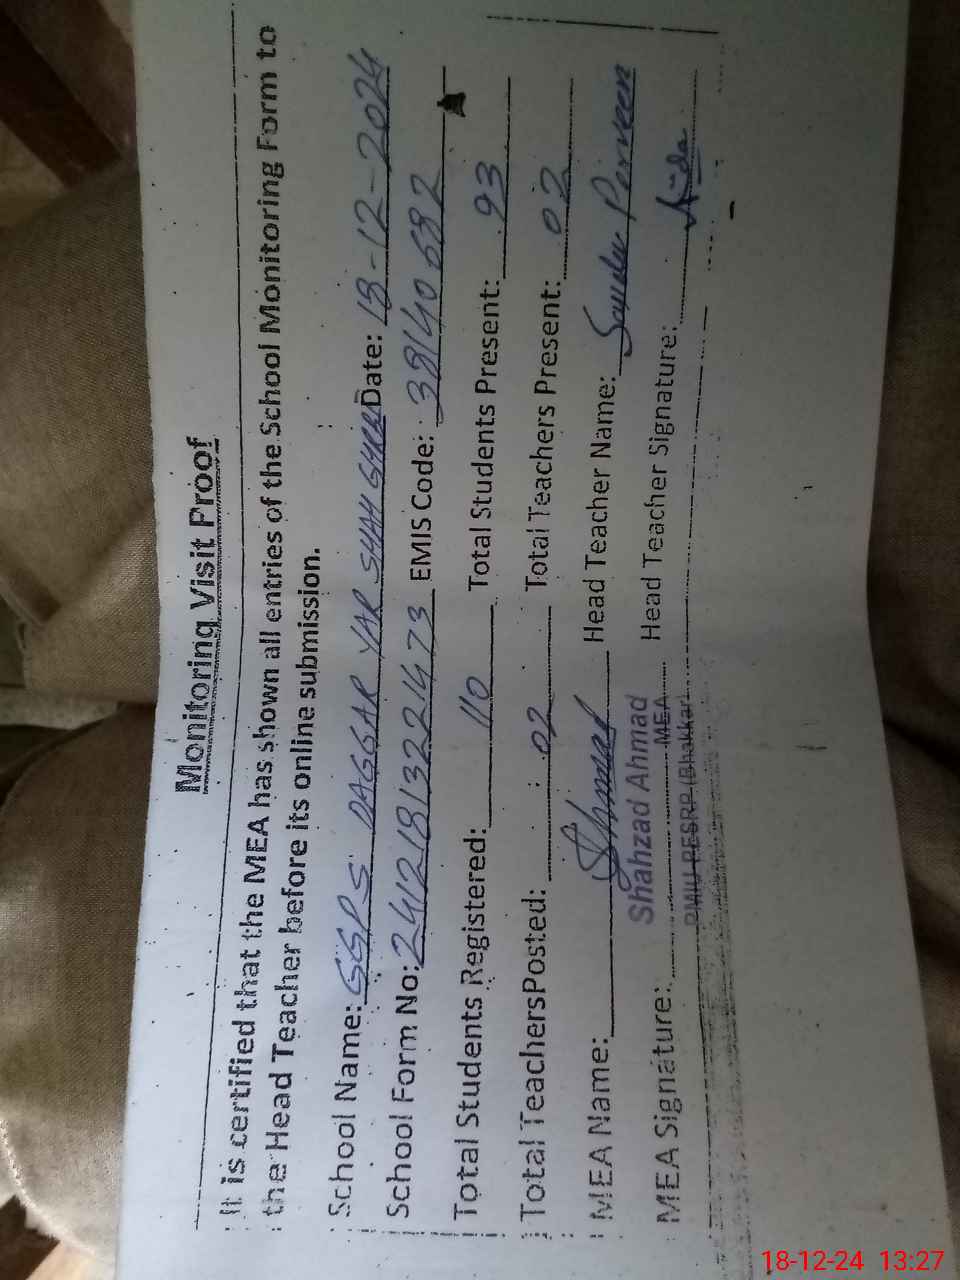 Monitoring Visit Proof
It is certified that the MEA has shown all entries of the School Monitoring Form to
the Head Teacher before its online submission.
School Name: GGPS DAGGAR YAR SHAH GHARBI Date: 18-12-2024
School Form No: 24121813221473 EMIS Code: 38140682
Total Students Registered: 110 Total Students Present: 93
Total TeachersPosted: 02 Total Teachers Present: 02
MEA Name: Head Teacher Name: Perveen
Shahzad Ahmad
MEA Signature: MEA Head Teacher Signature:
PMIU-PESRP (Bhakkar)
18-12-24 13:27